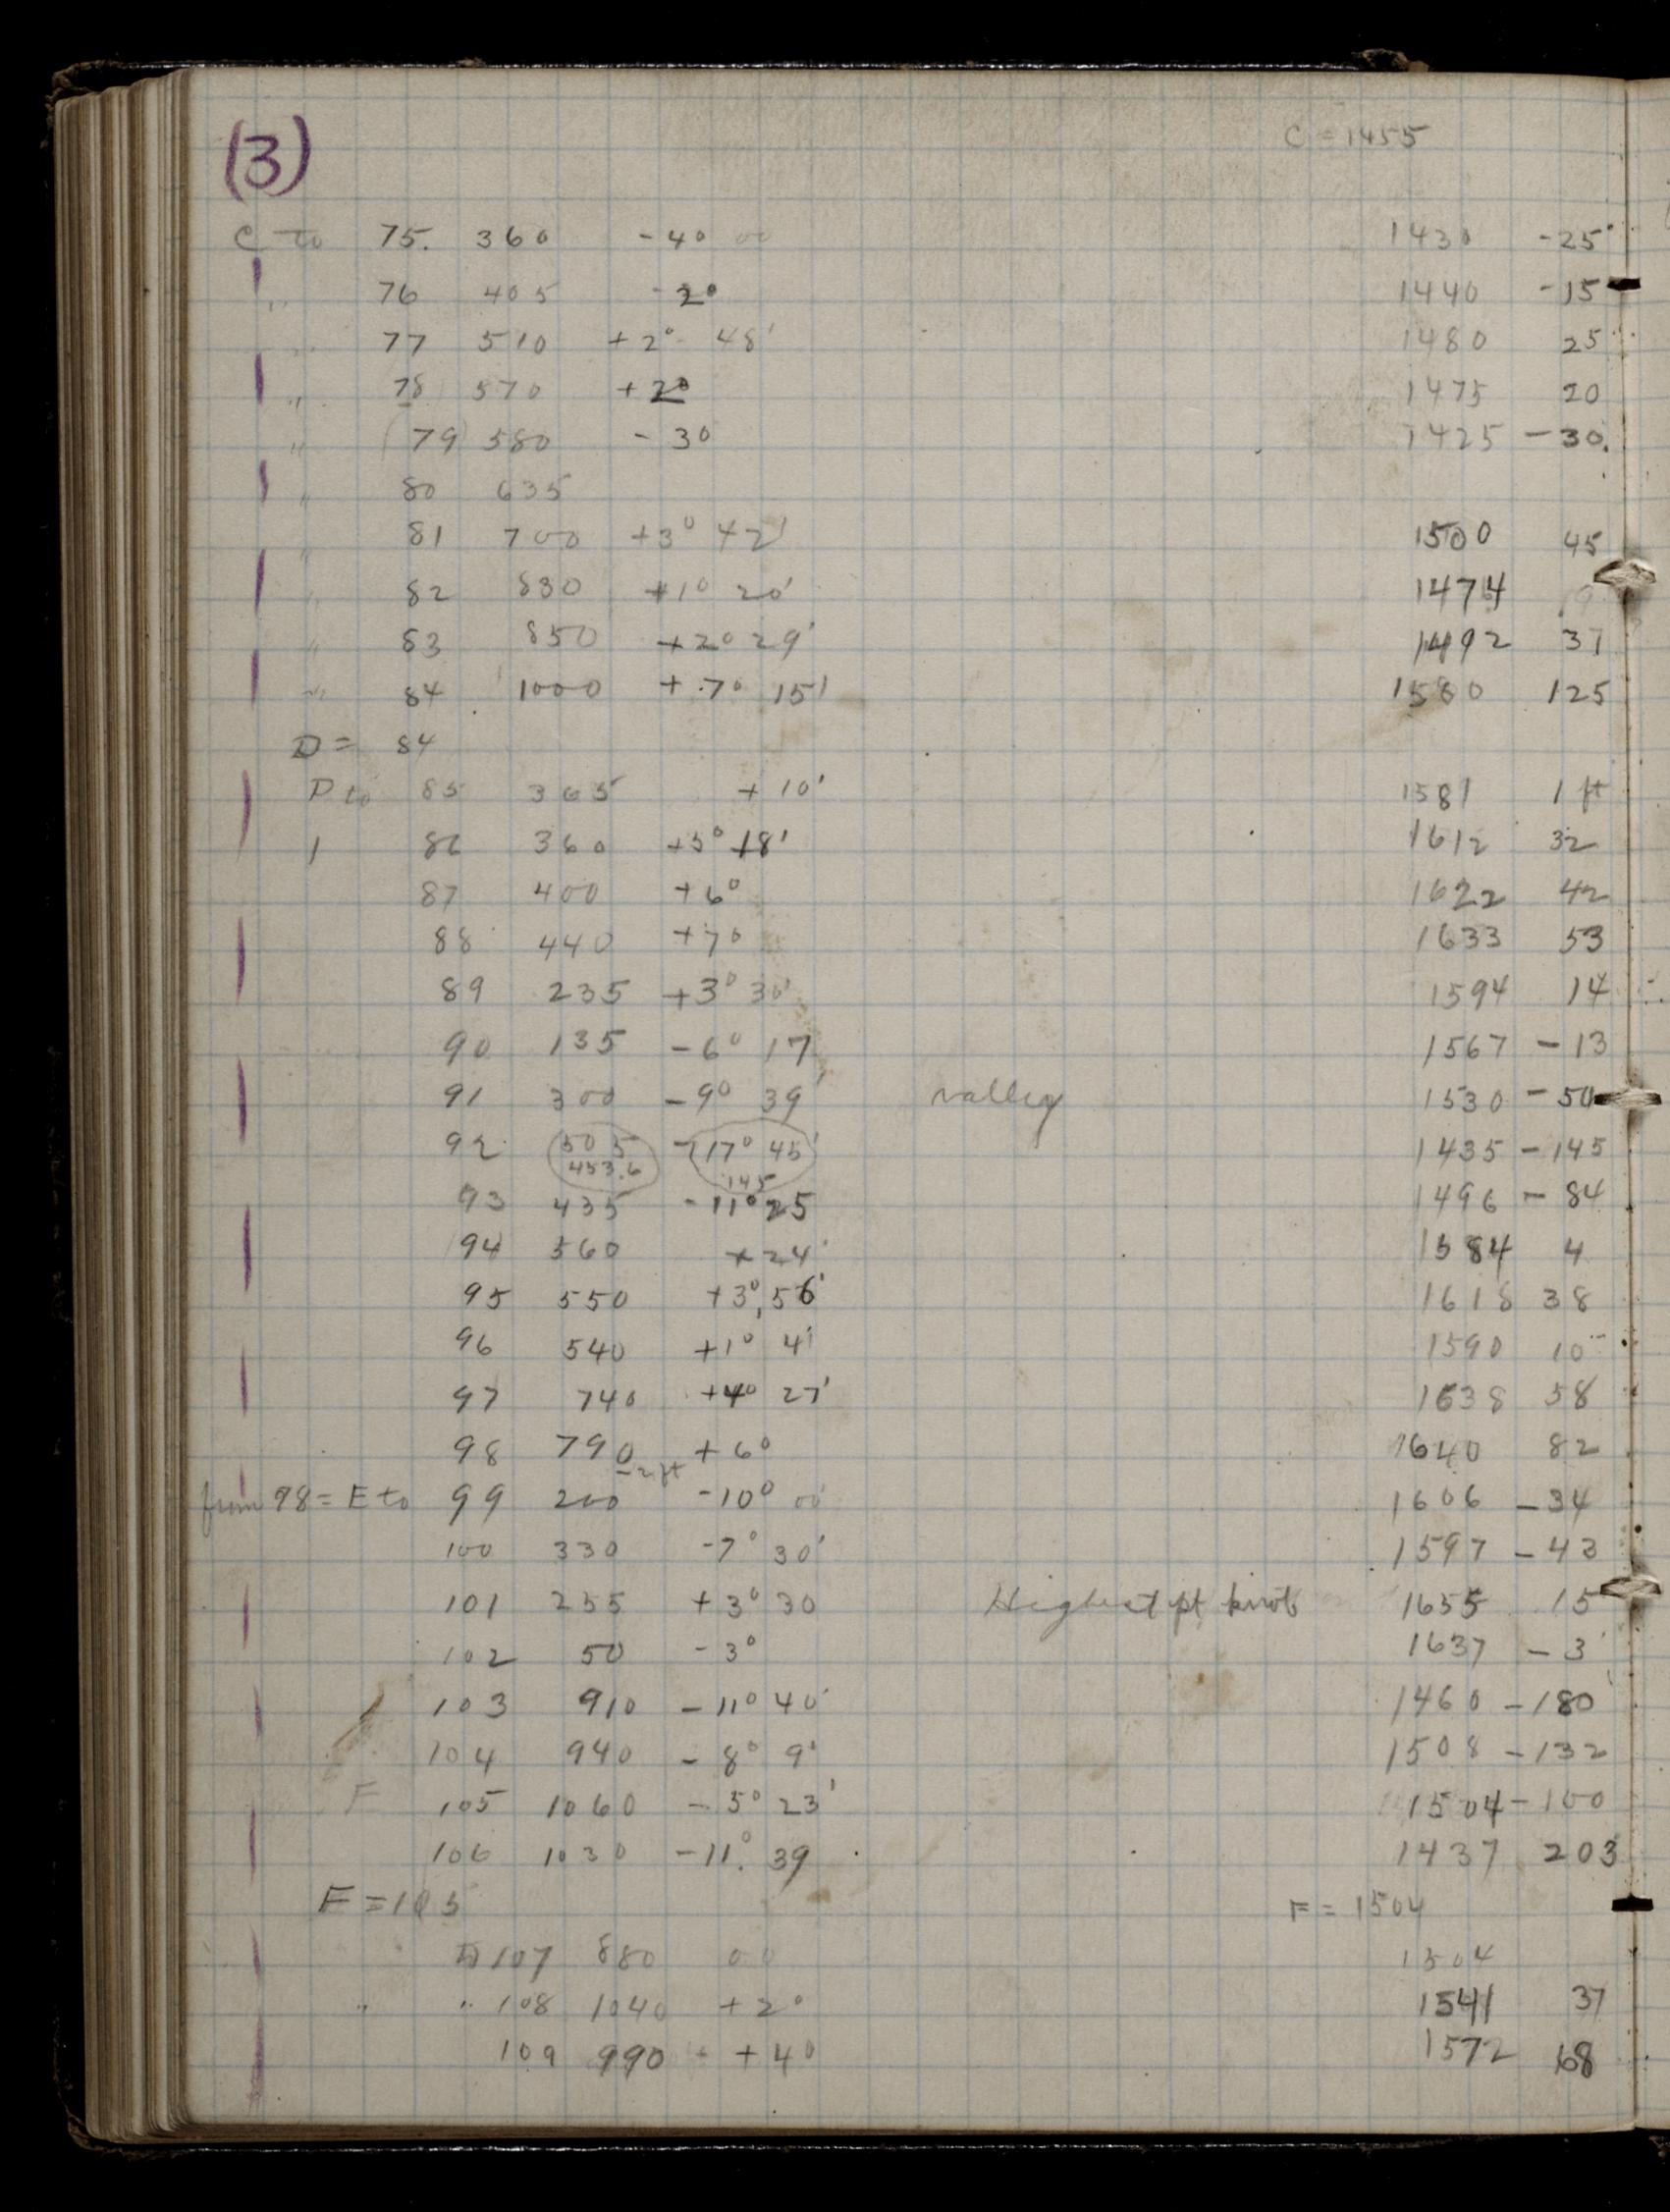 (3)
C = 1455
C to 75. 360 -4° 00 1430 -25
" 76 405 -2° 1440 -15
" 77 510 +2° 48' 1480 25
" 78 570 +2° 1475 20
" (79) 580 -3° 1425 -30.
" 80 635
" 81 700 +3° 42' 1500 45
" 82 830 +1° 20' 1474 19
" 83 850 +2° 29' 1492 37
" 84 1000 +7° 15' 1580 125
D = 84
D to 85 365 +10' 1581 1 ft
86 360 +5° 18' 1612 32
87 400 +6° 1622 42
88 440 +7° 1633 53
89 235 +3° 30' 1594 14
90 135 -6° 17 1567 -13
91 300 -9° 39' valley 1530 -50
92 505 -17° 45' 1435 -145
453.6 145
93 435 -11° 25 1496 -84
94 560 +24' 1584 4
95 550 +3° 56' 1618 38
96 540 +1° 4' 1590 10
97 740 +4° 27' 1638 58
98 790 +6° 1640 82
-2 ft
from 98 = E to 99 200 -10° 00' 1606 -34
100 330 -7° 30' 1597 -43
101 255 +3° 30 Highest pt knob 1655 15
102 50 -3° 1637 -3
103 910 -11° 40' 1460 -180
104 940 -8° 9' 1508 -132
F 105 1060 -5° 23' 1504 -100
106 1030 -11° 39 1437 203
F = 105 F = 1504
to 107 880 00 1504
" " 108 1040 +2° 1541 37
109 990 +4° 1572 68